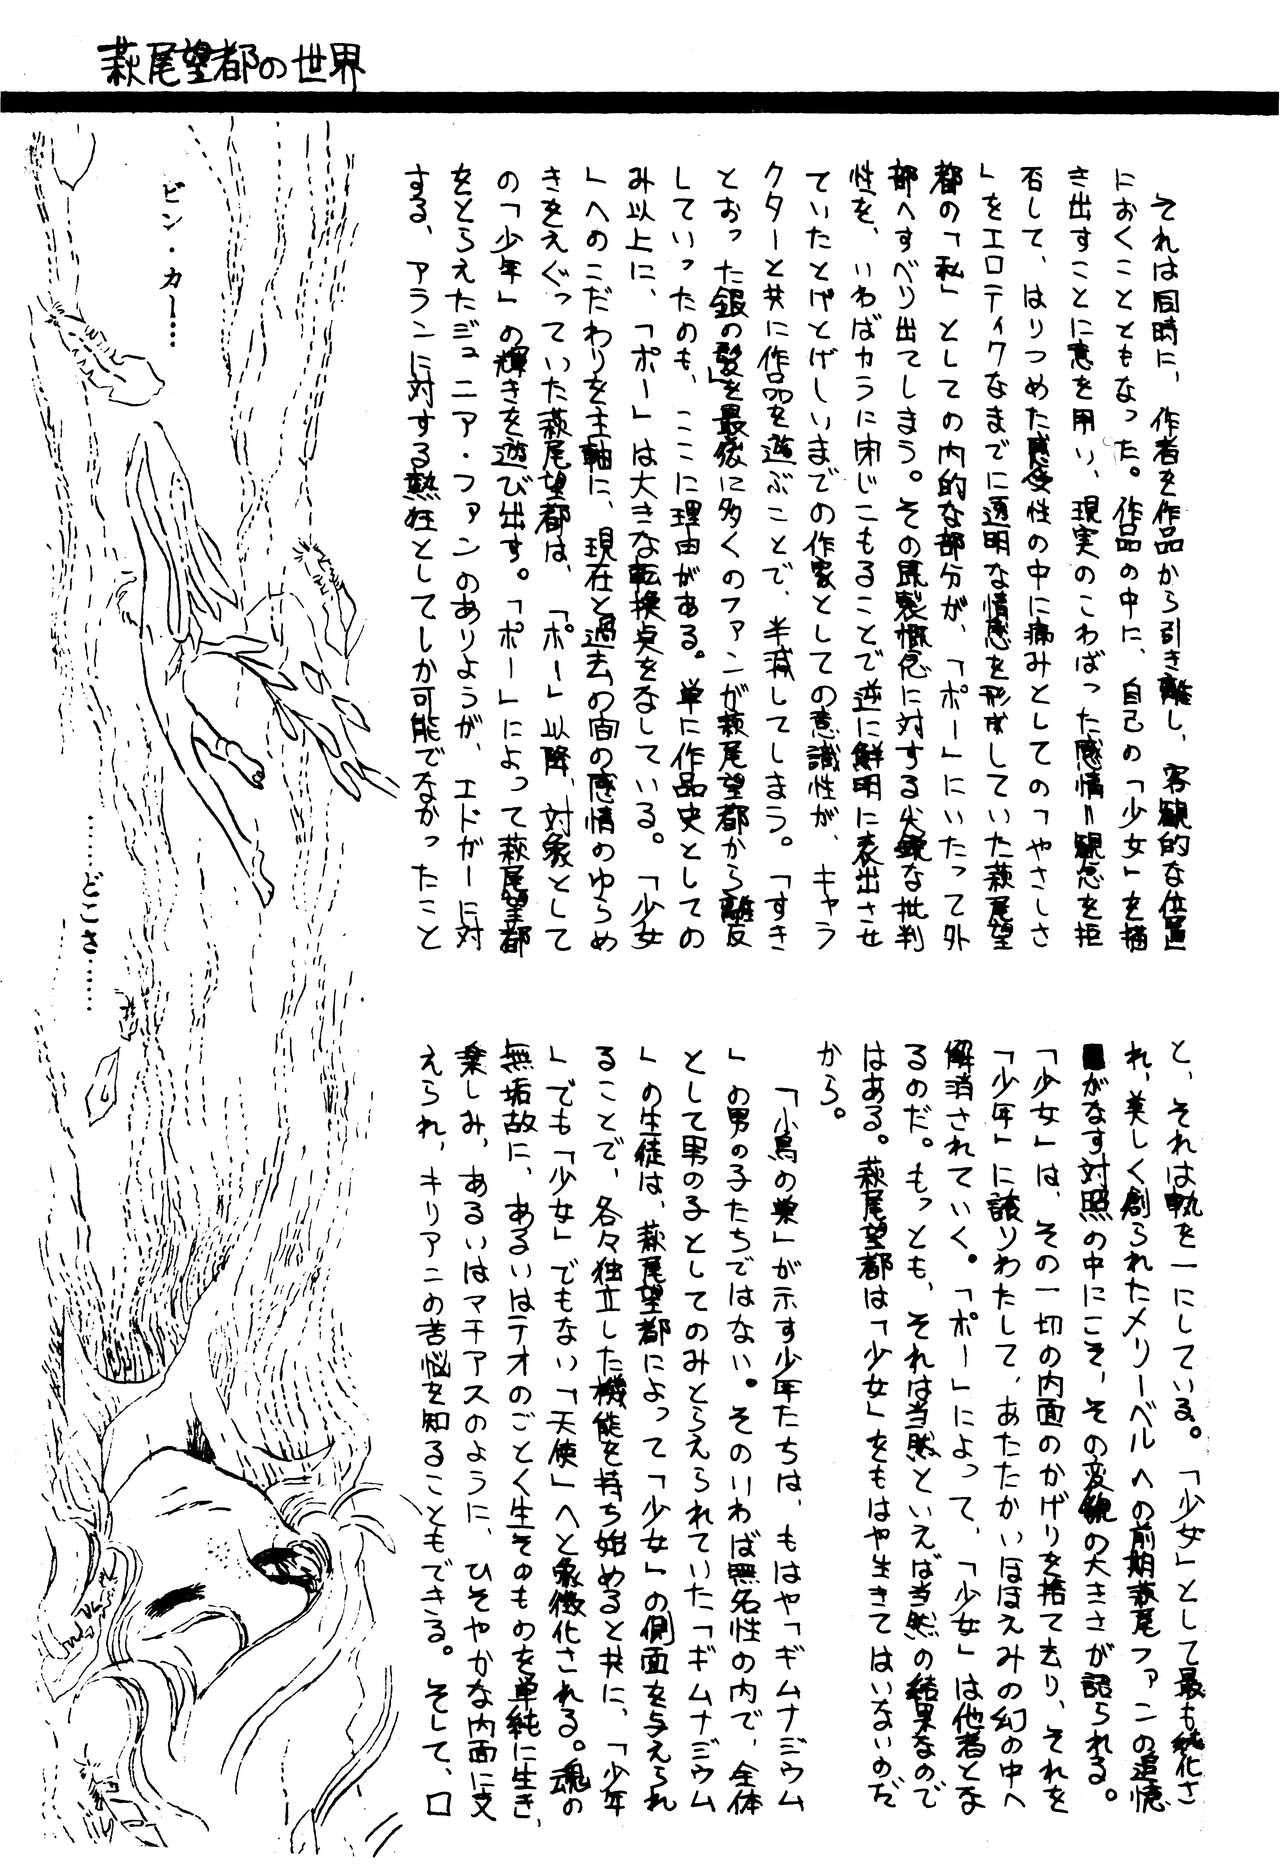 萩尾望都の世界
それは同時に、作者を作品から引き離し、客観的な位置
におくことともなった。作品の中に、自己の「少女」を描
き出すことに意を用い、現実のこわばった感情＝観念を拒
否して、はりつめた感受性の中に痛みとしての「やさしさ
」をエロティクなまでに透明な情感を形成していた萩尾望
都の「私」としての内的な部分が、「ポー」にいたって外
部へすべり出てしまう。その既製概念に対する尖鋭な批判
性を、いわばカラに閉じこもることで逆に鮮明に表出させ
ていたとげとげしいまでの作家としての意識性が、キャラ
クターと共に作品を遊ぶことで、半減してしまう。「すき
とおった銀の髪」を最後に多くのファンが萩尾望都から離反
していったのも、ここに理由がある。単に作品史としての
み以上に、「ポー」は大きな転換点をなしている。「少女
」へのこだわりを主軸に、現在と過去の間の感情のゆらめ
きをえぐっていた萩尾望都は、「ポー」以降、対象として
の「少年」の輝きを遊び出す。「ポー」によって萩尾望都
をとらえたジュニア・ファンのありようが、エドガーに対
する、アランに対する熱狂としてしか可能でなかったこと
と、それは軌を一にしている。「少女」として最も純化さ
れ、美しく創られたメリーベルへの前期萩尾ファンの追憶
がなす対照の中にこそ、その変貌の大きさが語られる。
「少女」は、その一切の内面のかげりを捨て去り、それを
「少年」に譲りわたして、あたたかいほほえみの幻の中へ
解消されていく。「ポー」によって、「少女」は他者とな
るのだ。もっとも、それは当然といえば当然の結果なので
はある。萩尾望都は「少女」をもはや生きてはいないのだ
から。
「小鳥の巣」が示す少年たちは、もはや「ギムナジウム
」の男の子たちではない。そのいわば無名性の内で、全体
として男の子としてのみとらえられていた「ギムナジウム
」の生徒は、萩尾望都によって「少女」の側面を与えられ
ることで、各々独立した機能を持ち始めると共に、「少年
」でも「少女」でもない「天使」へと象徴化される。魂の
無垢故に、あるいはテオのごとく生そのものを単純に生き、
楽しみ、あるいはマチアスのように、ひそやかな内面に支
えられ、キリアンの苦悩を知ることもできる。そして、ロ
ビン・カー…
……どこさ……